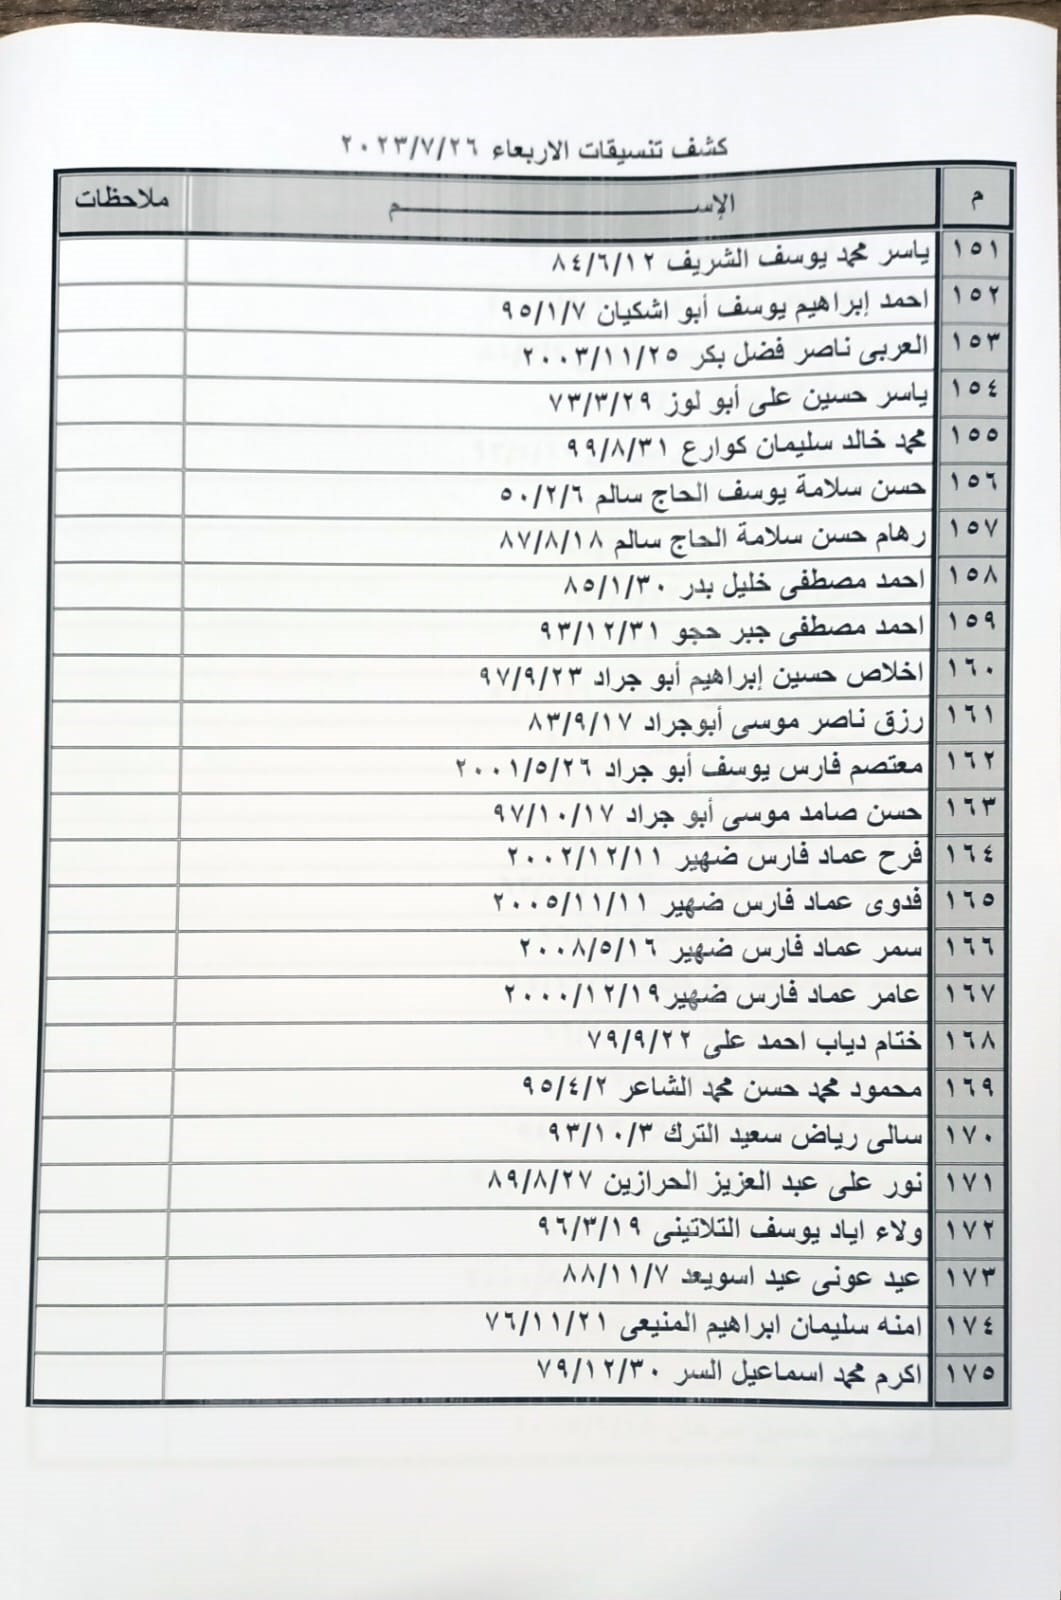 كشف تنسيقات الاربعاء ٢٠٢٣/٧/٢٦
م الإســـــــــم ملاحظات
١٥١ ياسر محمد يوسف الشريف ٨٤/٦/١٢
١٥٢ احمد إبراهيم يوسف أبو اشكيان ٩٥/١/٧
١٥٣ العربى ناصر فضل بكر ٢٠٠٣/١١/٢٥
١٥٤ ياسر حسين على أبو لوز ٧٣/٣/٢٩
١٥٥ محمد خالد سليمان كوارع ٩٩/٨/٣١
١٥٦ حسن سلامة يوسف الحاج سالم ٥٠/٢/٦
١٥٧ رهام حسن سلامة الحاج سالم ٨٧/٨/١٨
١٥٨ احمد مصطفى خليل بدر ٨٥/١/٣٠
١٥٩ احمد مصطفى جبر حجو ٩٣/١٢/٣١
١٦٠ اخلاص حسين إبراهيم أبو جراد ٩٧/٩/٢٣
١٦١ رزق ناصر موسى أبوجراد ٨٣/٩/١٧
١٦٢ معتصم فارس يوسف أبو جراد ٢٠٠١/٥/٢٦
١٦٣ حسن صامد موسى أبو جراد ٩٧/١٠/١٧
١٦٤ فرح عماد فارس ضهير ٢٠٠٢/١٢/١١
١٦٥ فدوى عماد فارس ضهير ٢٠٠٥/١١/١١
١٦٦ سمر عماد فارس ضهير ٢٠٠٨/٥/١٦
١٦٧ عامر عماد فارس ضهير ٢٠٠٠/١٢/١٩
١٦٨ ختام دياب احمد على ٧٩/٩/٢٢
١٦٩ محمود محمد حسن محمد الشاعر ٩٥/٤/٢
١٧٠ سالى رياض سعيد الترك ٩٣/١٠/٣
١٧١ نور على عبد العزيز الحرازين ٨٩/٨/٢٧
١٧٢ ولاء اياد يوسف التلاتينى ٩٦/٣/١٩
١٧٣ عيد عونى عيد اسويعد ٨٨/١١/٧
١٧٤ امنه سليمان ابراهيم المنيعى ٧٦/١١/٢١
١٧٥ اكرم محمد اسماعيل السر ٧٩/١٢/٣٠